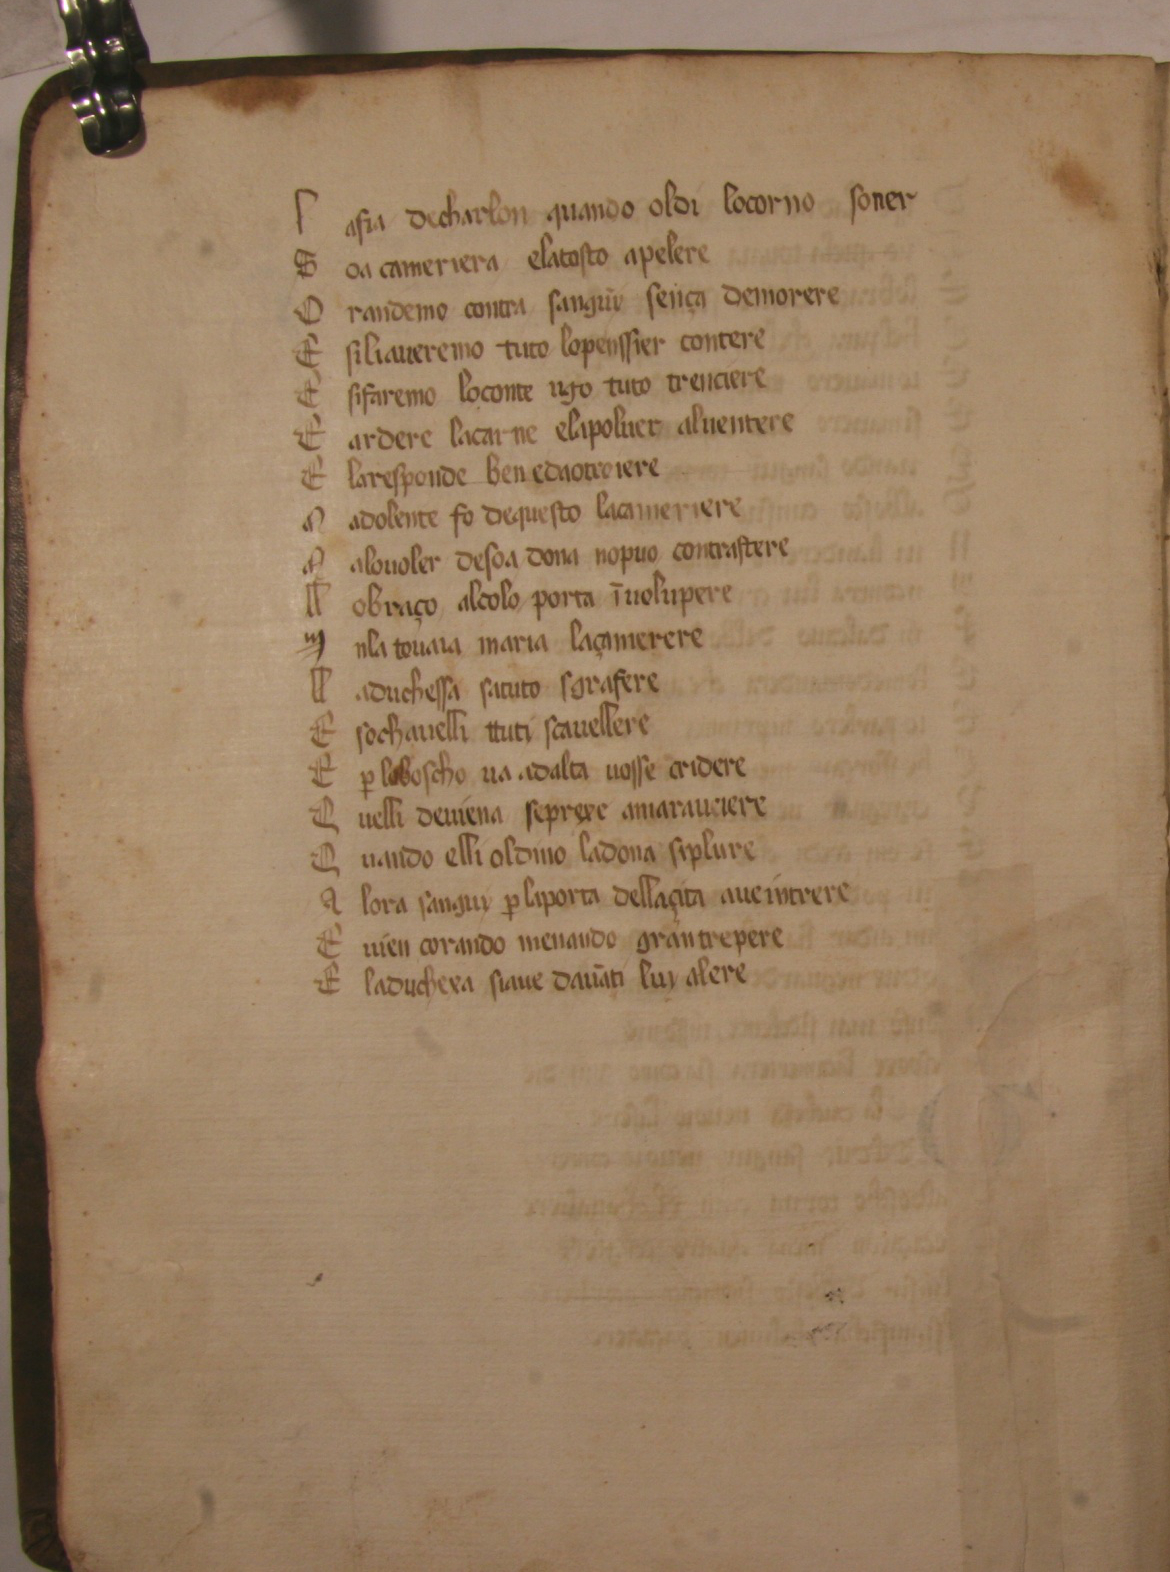 L afia decharlon quando oldi locorno soner
S oa cameriera elatosto apelere
O randemo contra sanguī sença demorere
E siliaueremo tuto lopenssier contere
E sifaremo loconte ugo tuto trenciere
E ardere lacarne elapoluer aluentere
E laresponde ben edaotroiere
M adolente fo dequesto lacameriere
M alouoler desoa dona nopuo contrastere
L obraço alcolo porta īuolupere
I nla touaia maria laçamerere
L aduchessa satuto sgrafere
E sochauelli ttuti scauellere
E ꝑ loboscho ua adalta uosse cridere
Q uelli deuiena seprexe amaraueiere
Q uando elli oldino ladona siplure
A lora sanguī ꝑ laporta dellaçita aue intrere
E uien corando menando gran trepere
E laduchexa siaue dauāti luy alere